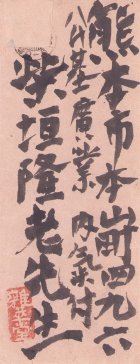 熊本市本山町四九六
基廣業 内気付
柴垣隆老先生